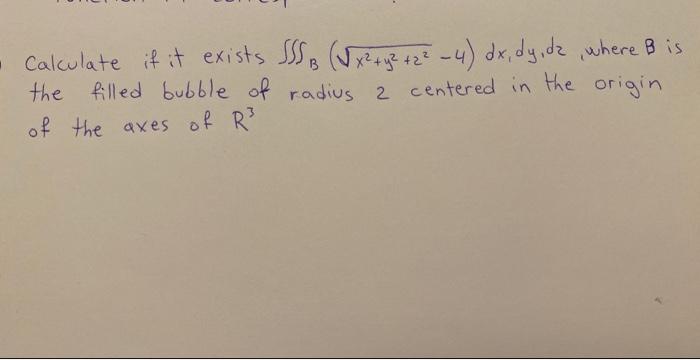 Calculate if it exists ∭_B (√x²+y²+z² -4) dx,dy,dz ,where B is
the filled bubble of radius 2 centered in the origin
of the axes of R³